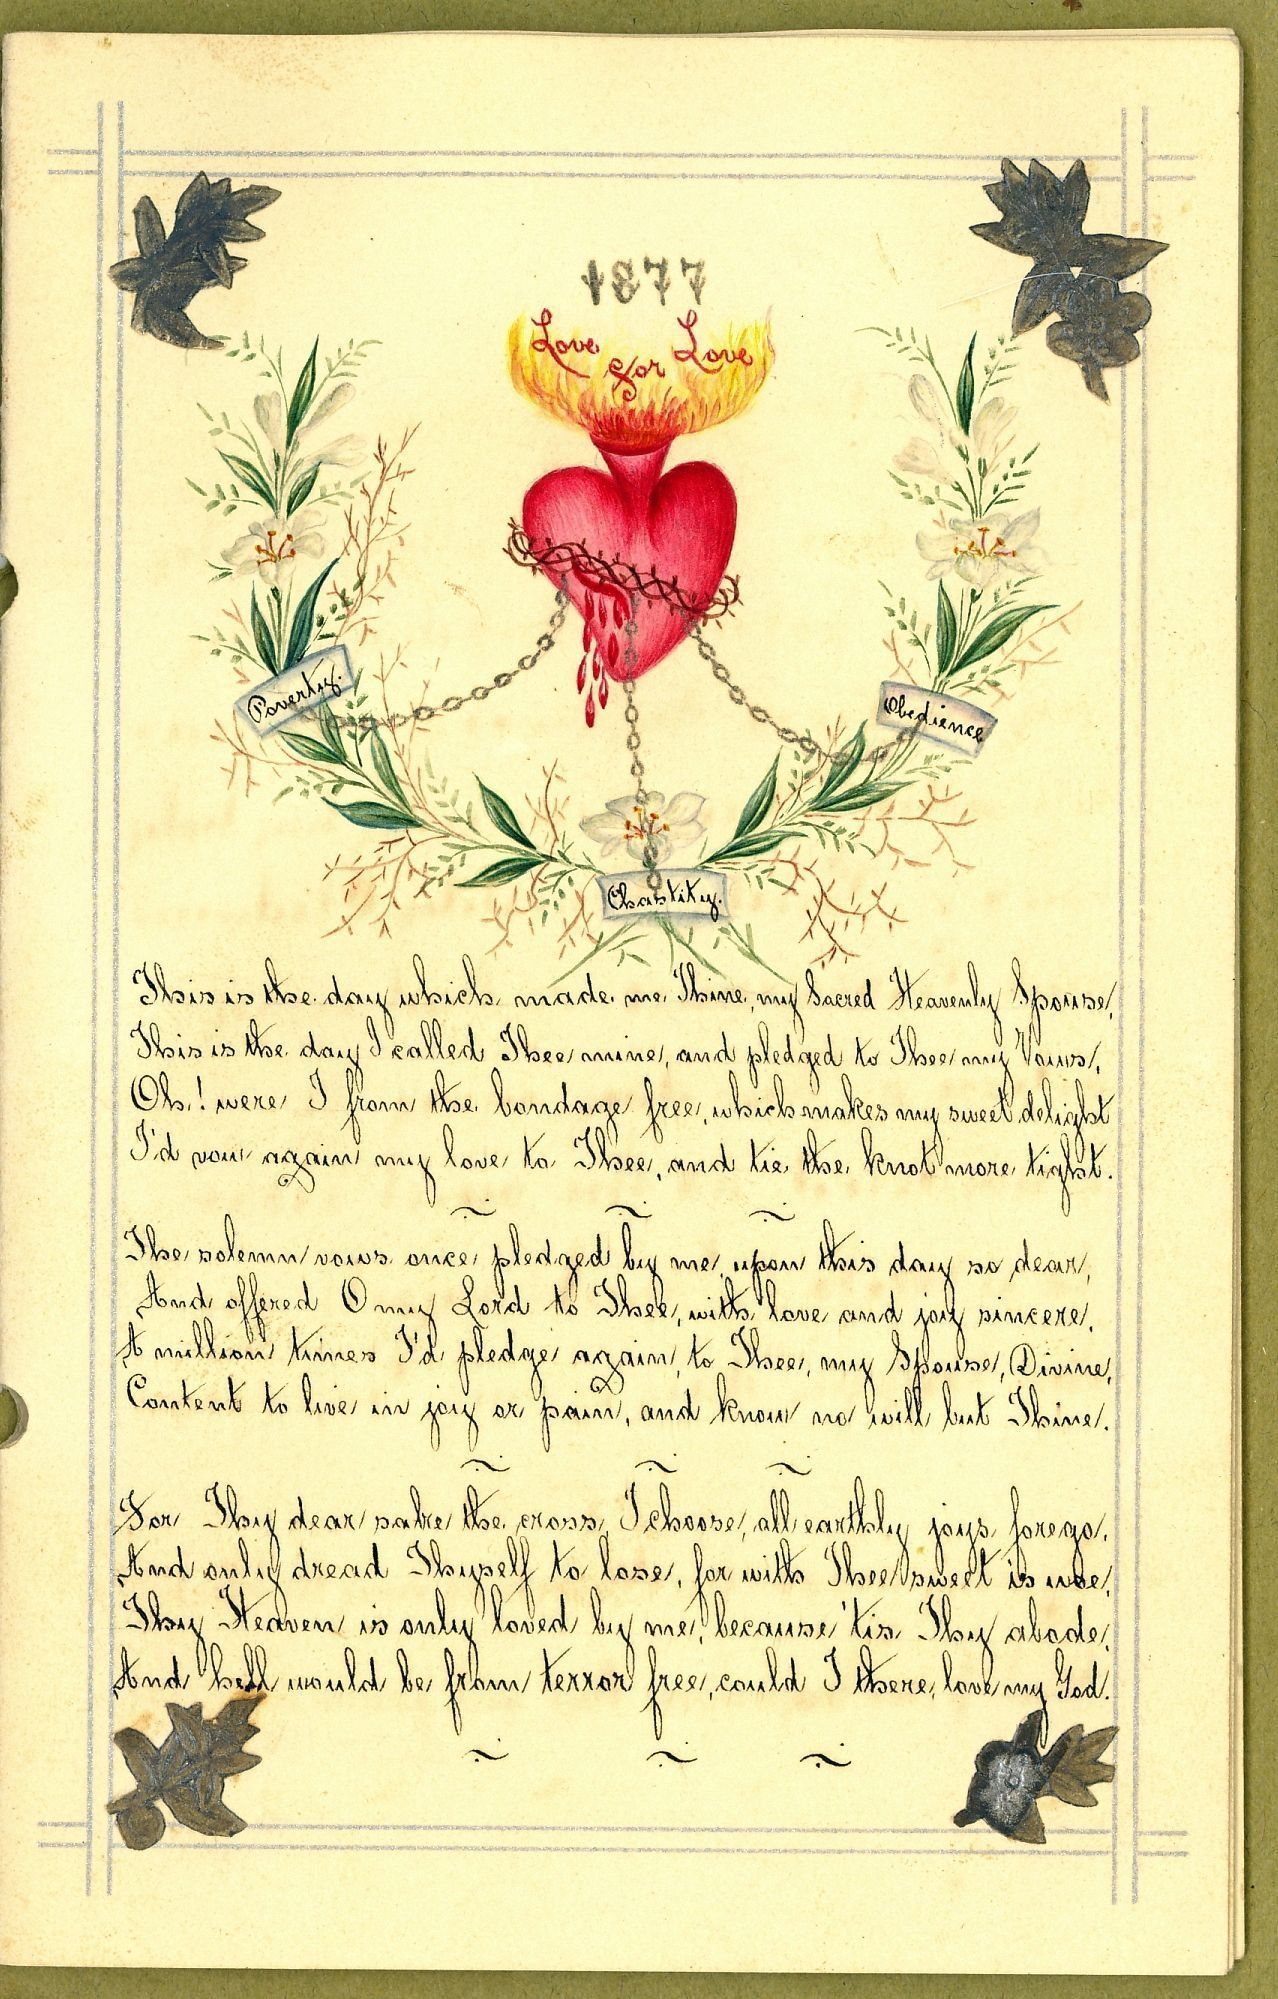 1877
Love for Love
Poverty.
Obedience
Chastity.
This is the day which made me Thine, my Sacred Heavenly Spouse,
This is the day I called Thee mine, and pledged to Thee my Vows,
Oh! were I from the bondage free, which makes my sweet delight
I'd vow again my love to Thee, and tie the knot more tight.
The solemn vows once pledged by me, upon this day so dear,
And offered O my Lord to Thee, with love and joy sincere,
A million times I'd pledge again, to Thee, my Spouse, Divine,
Content to live in joy or pain, and know no will but Thine.
For Thy dear sake the cross, I choose, all earthly joys forego,
And only dread Thyself to lose, for with Thee sweet is woe,
Thy Heaven is only loved by me, because 'tis Thy abode,
And hell would be from terror free, could I there, love my God.